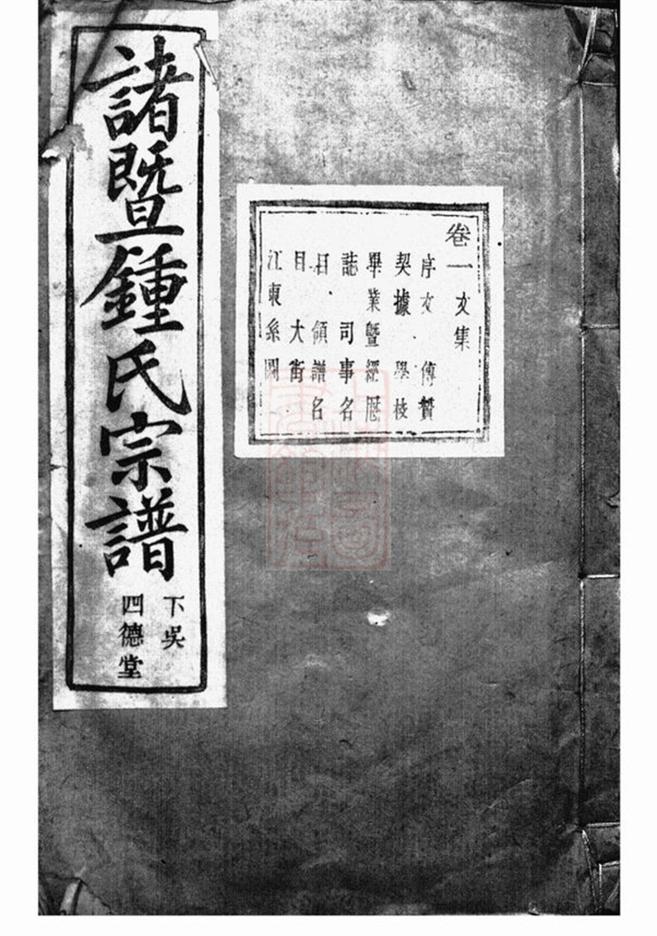 諸暨鍾氏宗譜
下吳
四德堂
卷一文集
序文 傳贊
契據 學校
畢業暨經歷
誌 司事名
目 領譜名
目 大街
江東系圖